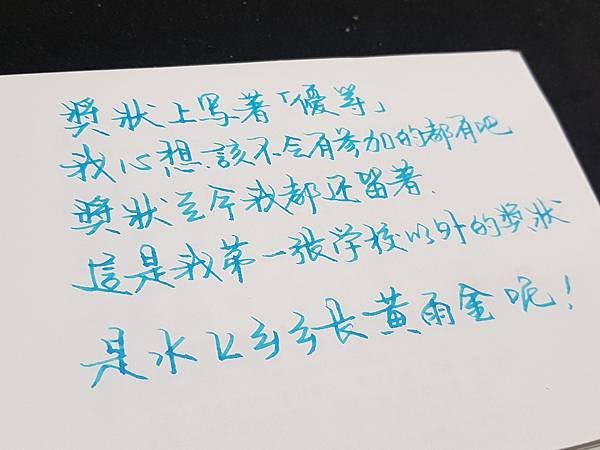 獎狀上写著「優等」
我心想該不会有参加的都有吧
獎狀至今我都还留著.
這是我第一張学校以外的獎狀
是水上乡乡長黃雨金呢!